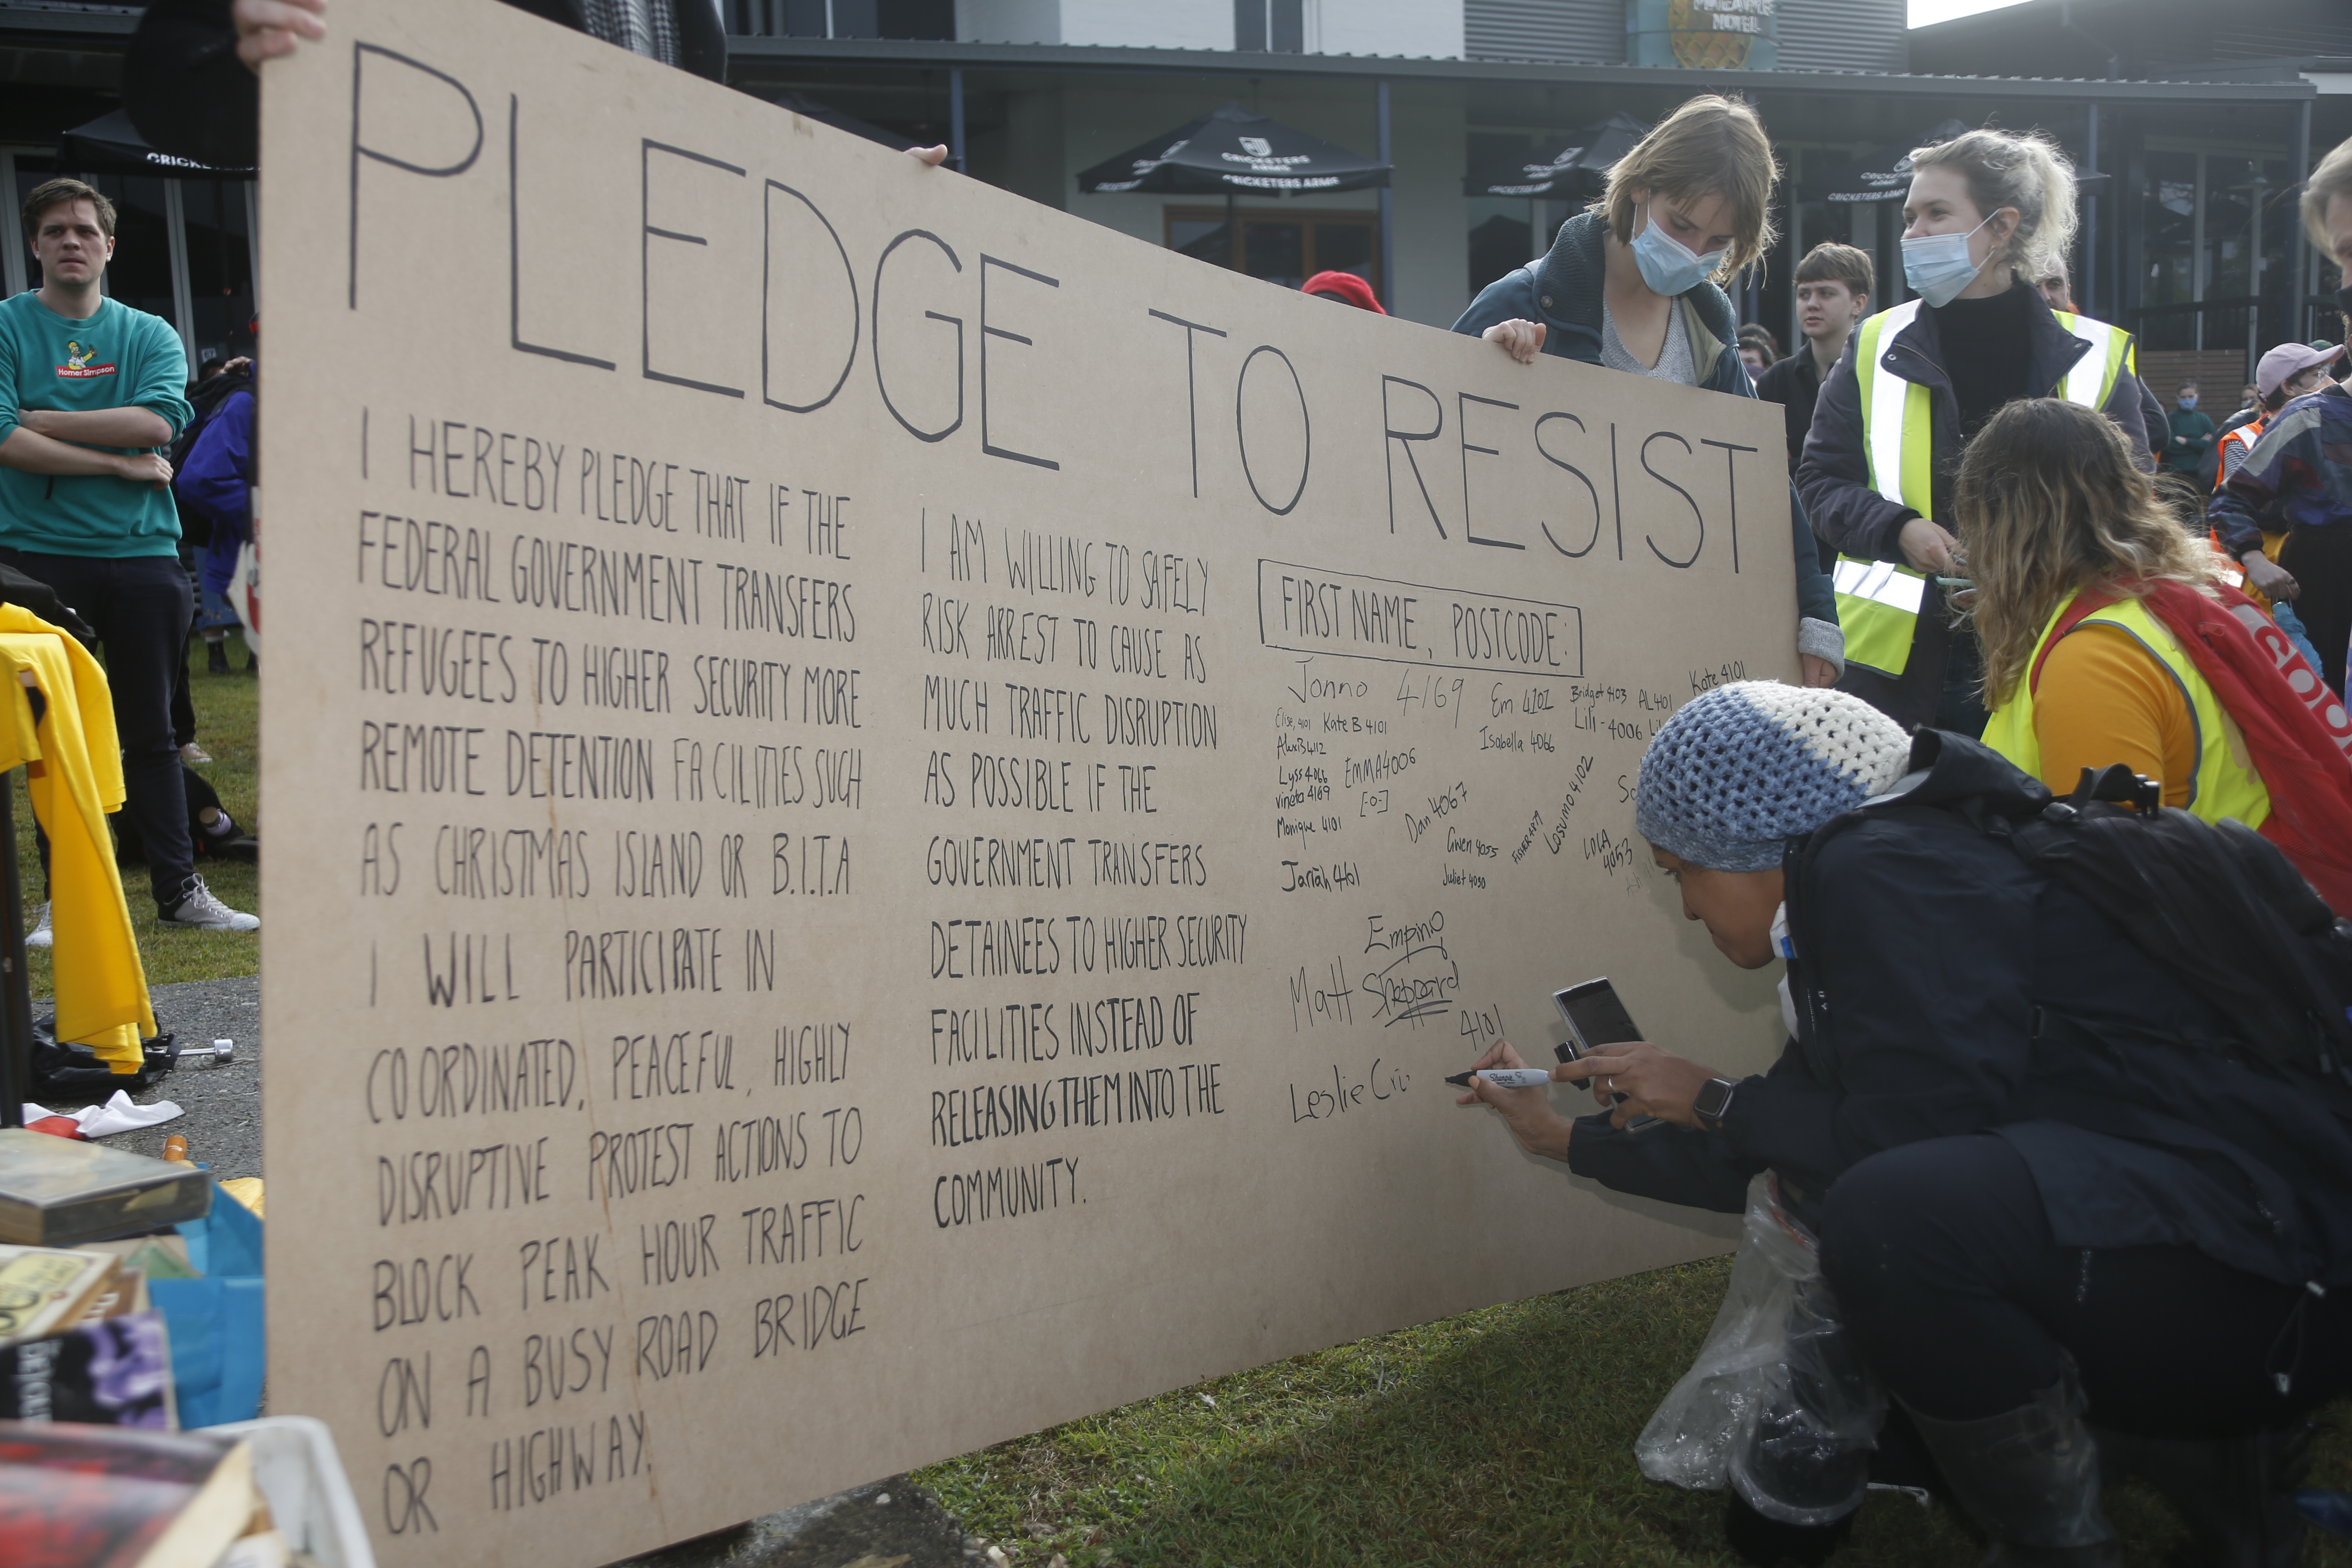 PINEAPPLE
HOTEL
CRICKETERS
ARMS
CRICKETERS ARMS
Homer Simpson
PLEDGE TO RESIST
I HEREBY PLEDGE THAT IF THE
FEDERAL GOVERNMENT TRANSFERS
REFUGEES TO HIGHER SECURITY MORE
REMOTE DETENTION FACILITIES SUCH
AS CHRISTMAS ISLAND OR B.I.T.A
I WILL PARTICIPATE IN
COORDINATED, PEACEFUL, HIGHLY
DISRUPTIVE PROTEST ACTIONS TO
BLOCK PEAK HOUR TRAFFIC
ON A BUSY ROAD BRIDGE
OR HIGHWAY.
I AM WILLING TO SAFELY
RISK ARREST TO CAUSE AS
MUCH TRAFFIC DISRUPTION
AS POSSIBLE IF THE
GOVERNMENT TRANSFERS
DETAINEES TO HIGHER SECURITY
FACILITIES INSTEAD OF
RELEASING THEM INTO THE
COMMUNITY.
FIRST NAME, POSTCODE:
Jonno 4169
Em 4101
Bridget 4103
AL 401
Kate 4101
Elise, 4101
Kate B 4101
Isabella 4066
Lili - 4006
4112
Lyss 4066
EMMA 4006
vineta 4169
[-o-]
Monique 4101
Dan 4067
Gwen 4055
Losumo 4102
LOLA
4053
Jarrah 4101
Juliet 4030
Empinio
Matt Sheppard
4101
Leslie
Sharpie